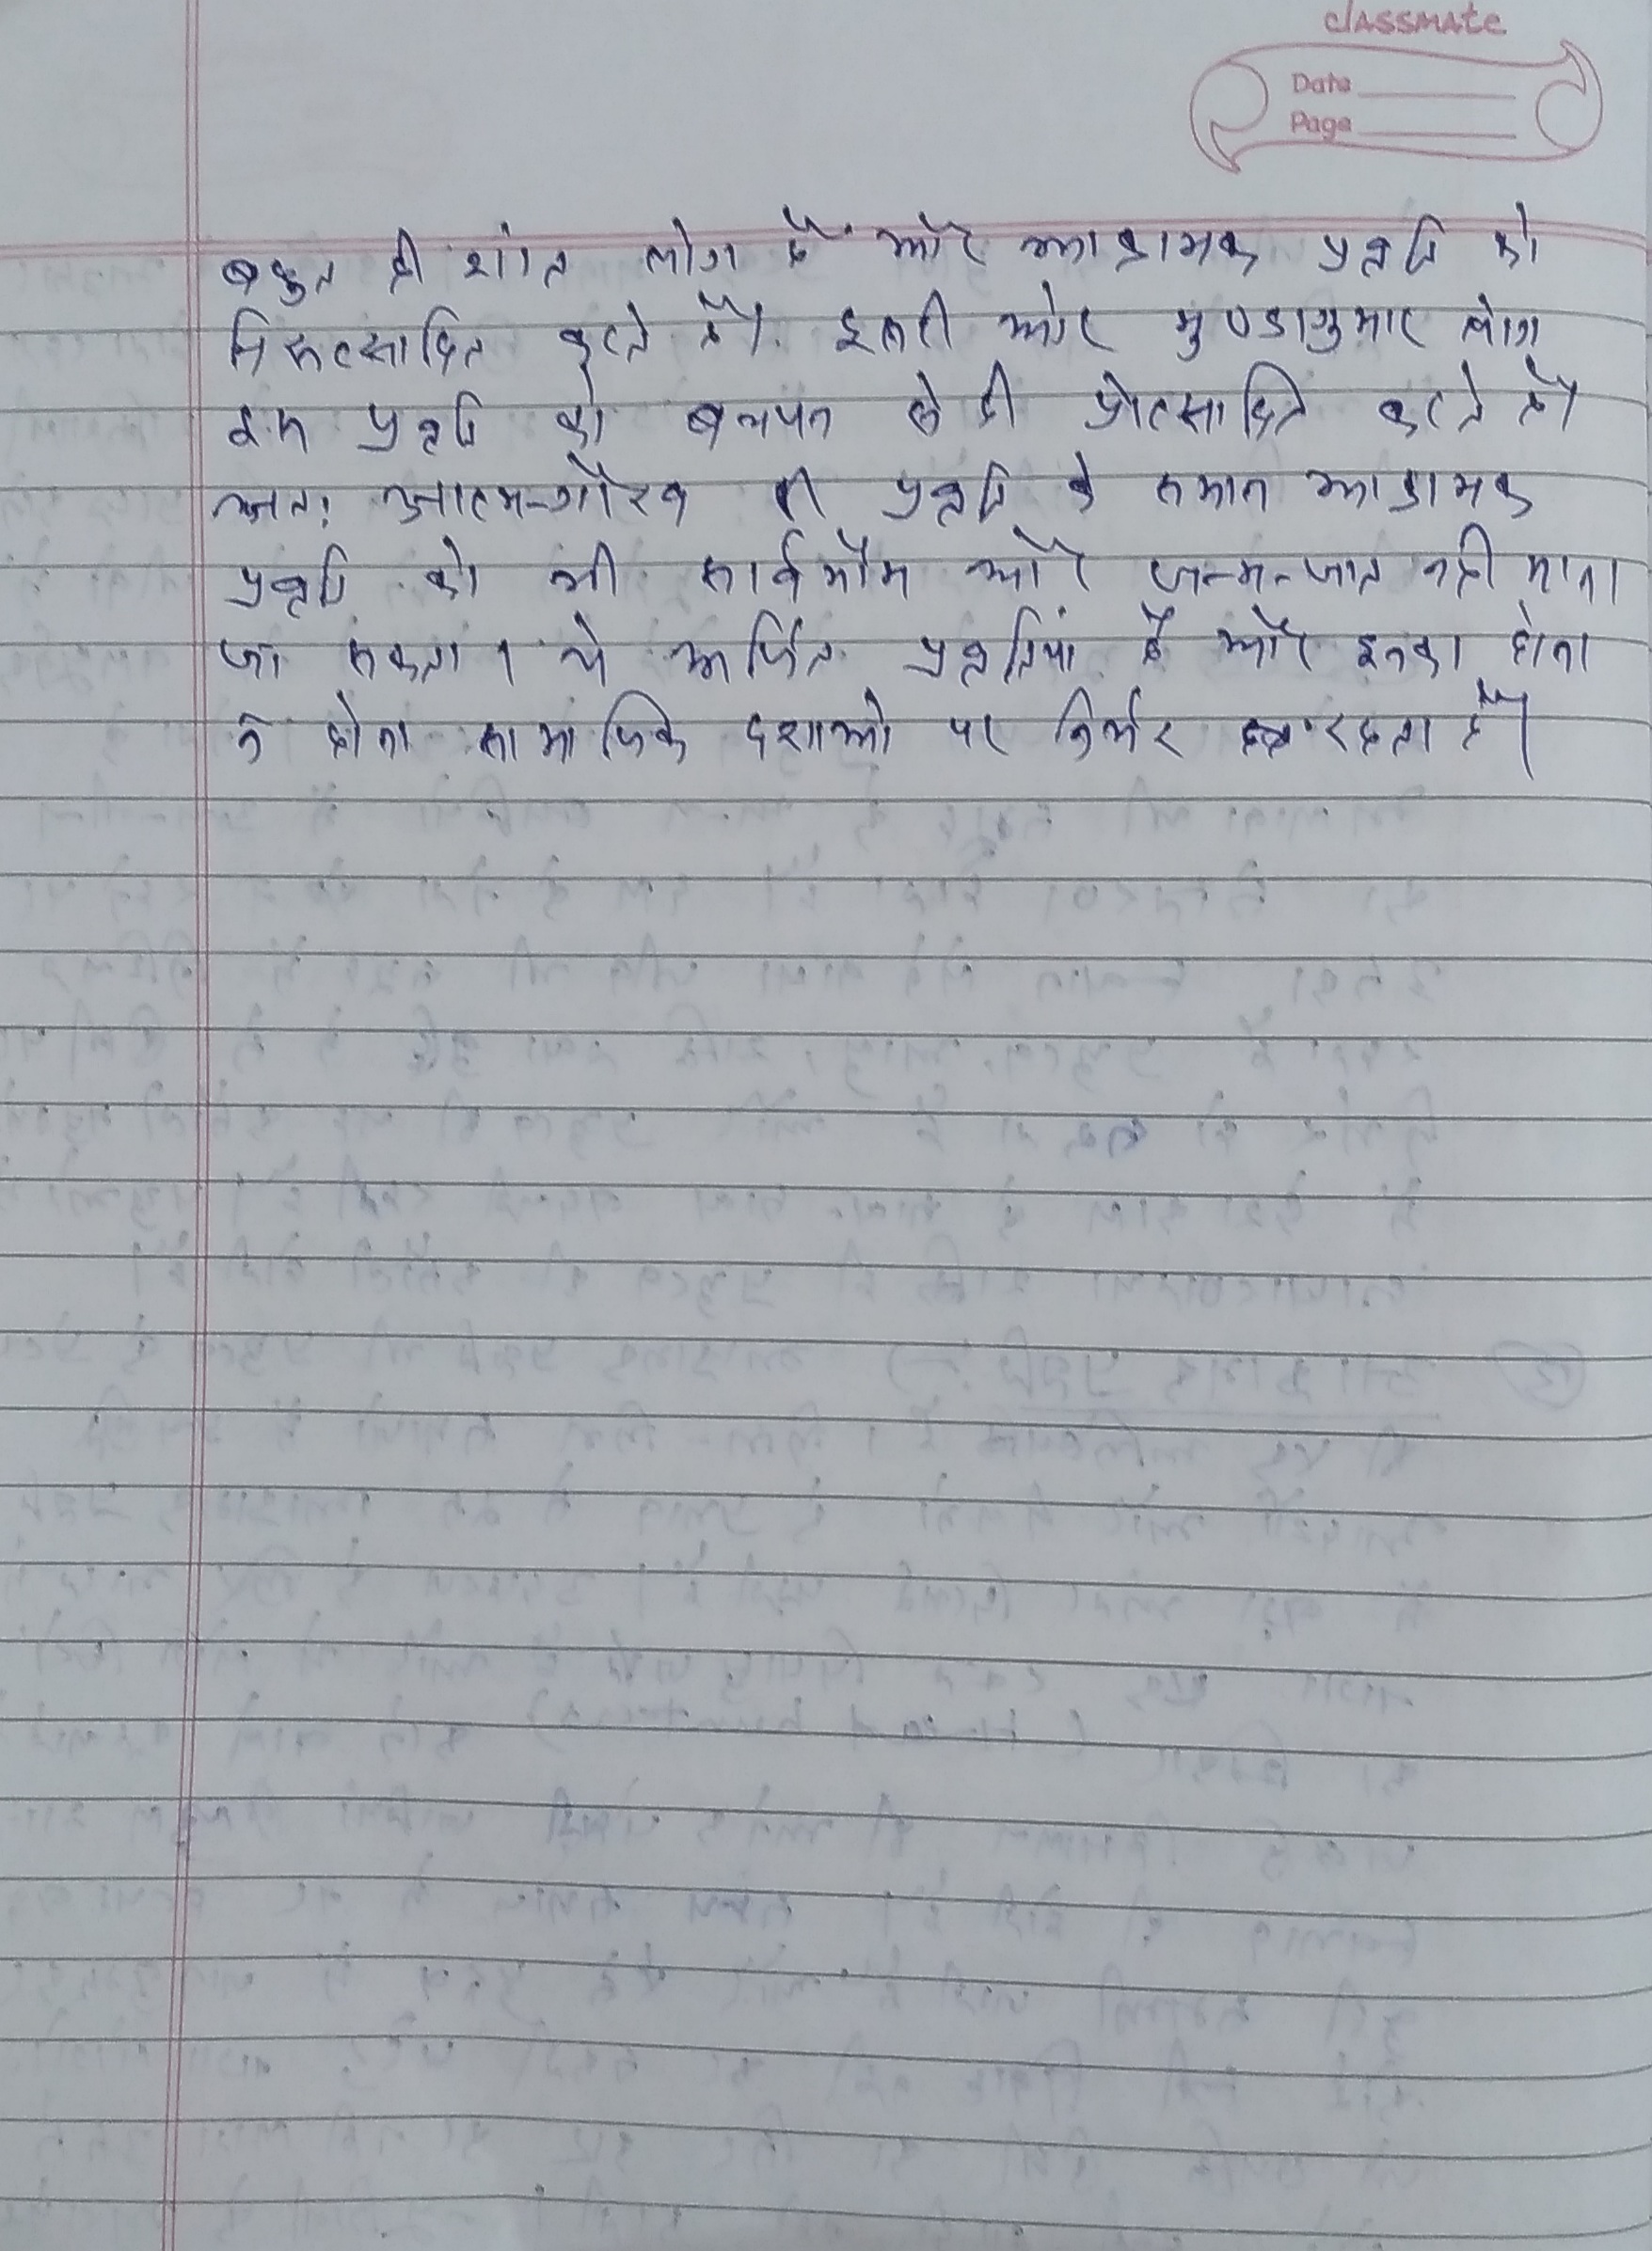 classmate
Date
Page
बहुत ही शांत लोग हैं और आक्रामक प्रवृत्ति को
निरूत्साहित करते हैं। दूसरी ओर मुण्डागुमार लोग
इस प्रवृत्ति को बचपन से ही प्रोत्साहित करते हैं।
अतः आत्म-गौरव की प्रवृत्ति के समान आक्रामक
प्रवृत्ति को भी सार्वभौम और जन्म-जात नही माना
जा सकता। ये अर्जित प्रवृत्तियां हैं और इनका होना
न होना सामाजिक दशाओ पर निर्भर रहता है।